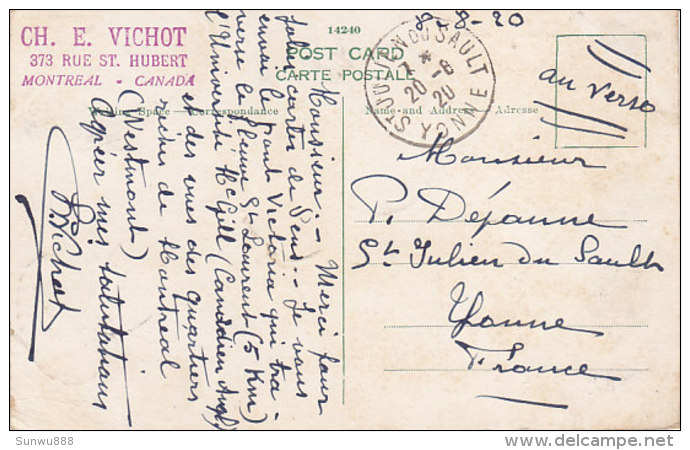 CH. E. VICHOT
373 RUE ST. HUBERT
MONTREAL - CANADA
14240
8-8-20
POST CARD
CARTE POSTALE
Space - Correspondance
Name and Address - Adresse
ST JULIEN DU SAULT
20
20
YONNE
au verso
Monsieur
P. Déjanne
St Julien du Sault
Yonne
France
Monsieur :- Merci pour
jolie carte de Sens :- Je vous
envoi le pont Victoria qui tra-
verse le fleuve St Laurent (5 Km)
l'Université McGill (Canadien Angl)
et des vues des quartiers
riches de Montreal
(Westmount)
Agréer mes salutations
Vichot
Sunwu888
delcampe.net